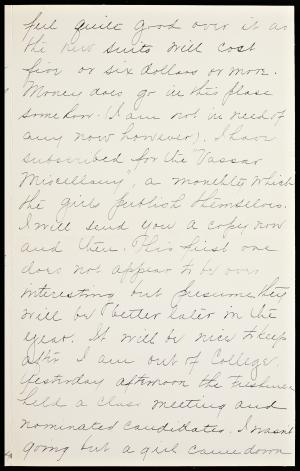 feel quite good over it as
the new suits will cost
five or six dollars or more.
Money does go in this place
somehow. (I am not in need of
any now however). I have
subscribed for the "Vassar
Miscellany", a monthly which
the girls publish themselves.
I will send you a copy now
and then. This first one
does not appear to be over
interesting but presume they
will be better later in the
year. It will be nice to keep
after I am out of College.
Yesterday afternoon the Freshmen
held a class meeting and
nominated candidates. I wasn't
going but a girl came down